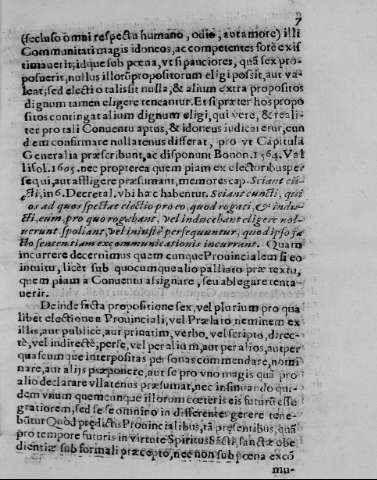 7
(secluso omni respectu humano, odio, aut amore) illi
Communitati magis idoneos, ac competentes forè exis
timauerit; idque sub pœna, vt si pauciores, quã sex pro-
posuerit, nullus illorũ propositorum eligi possit, aut va-
leat; sed electio talis sit nulla, & alium extra propositos
dignum tamen eligere teneantur. Et si præter hos propo
sitos contingat alium dignum eligi, qui verè, & reali-
ter pro tali Conuentu aptus, & idoneus iudicat erit, eun
dem confirmare nullatenus differat, pro vt Capitula
Generalia præscribunt, ac disponunt Bonon. 1564. Val
lisol. 1605. nec propterea quem piam ex electoribus per
sequi, aut affligere præsumant, memores cap. Sciant cũ-
cti, in 6. Decretal, vbi hæc habentur. Sciant cuncti, qui
os ad quos spectat electio pro eo, quod rogati, & indu-
cti, eum, pro quo rogabant, vel inducebant eligere nol-
uerunt, spoliant, vel iniustè persequuntur, quod ipso fa-
cto sententiam excommunicationis incurrant. Quam
incurrere decernimus quemcunque Prouincialem si eo
intuitu, licèt sub quocumque alio palliato præ textu,
quempiam à Conuentu assignare, seu ablegare tenta-
uerit.
Deinde facta propositione sex, vel plurium pro qua
libet electione à Prouinciali, vel Prælato neminem ex
illis, aut publicè, aut priuatim, verbo, vel scripto, direc-
tè, vel indirectè, per se, vel per alium, aut per alios, aut per
quascumque interpositas personas commendare, nomi
nare, aut alijs præponere, aut se pro vno magis quã pro
alio declarare vllatenus præsumat, nec insinuando qui-
dem vnum quemcunque illorum cœteris eis futurũ esse
gratiorem, sed se se omnino indifferenter gerere tene-
bũtur Quod prędictis Prouincialibus, tã pręsentibus, quã
pro tempore futuris in virtute Spiritus Sãcti, sanctæ obe
dientiæ sub formali præcepto, nec non sub pœna excõ
mu-